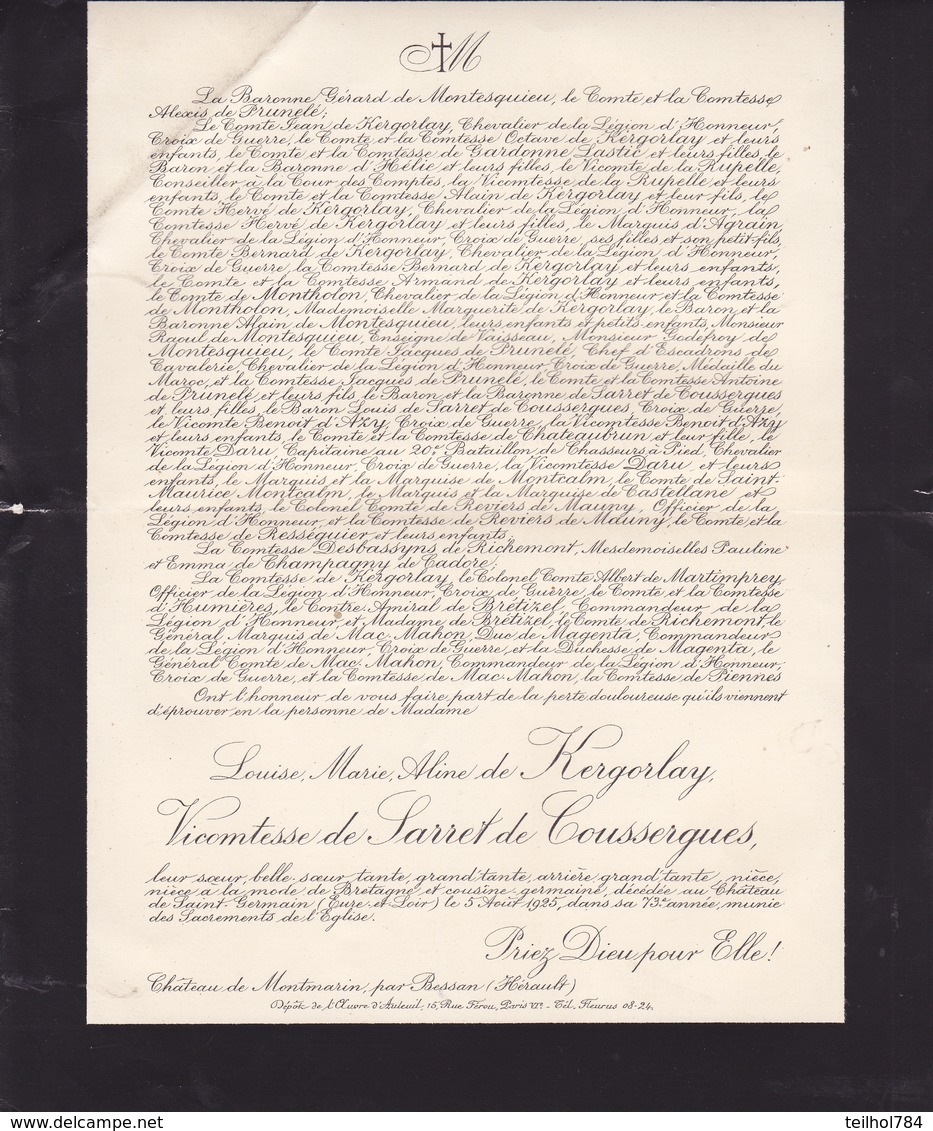 M
La Baronne Gérard de Montesquieu, le Comte et la Comtesse
Alexis de Prunelé;
Le Comte Jean de Kergorlay, Chevalier de la Légion d'Honneur,
Croix de Guerre, le Comte et la Comtesse Octave de Kergorlay et leurs
enfants, le Comte et la Comtesse de Gardonne Lastic et leurs filles, le
Baron et la Baronne d'Hélie et leurs filles, le Vicomte de la Rupelle,
Conseiller à la Cour des Comptes, la Vicomtesse de la Rupelle et leurs
enfants, le Comte et la Comtesse Alain de Kergorlay et leur fils, le
Comte Hervé de Kergorlay, Chevalier de la Légion d'Honneur, la
Comtesse Hervé de Kergorlay et leurs filles, le Marquis d'Agrain
Chevalier de la Légion d'Honneur, Croix de Guerre, ses filles et son petit-fils,
le Comte Bernard de Kergorlay, Chevalier de la Légion d'Honneur,
Croix de Guerre, la Comtesse Bernard de Kergorlay et leurs enfants,
le Comte et la Comtesse Armand de Kergorlay et leurs enfants,
le Comte de Montholon, Chevalier de la Légion d'Honneur et la Comtesse
de Montholon, Mademoiselle Marguerite de Kergorlay, le Baron et la
Baronne Alain de Montesquieu, leurs enfants et petits enfants, Monsieur
Raoul de Montesquieu, Enseigne de Vaisseau, Monsieur Godefroy de
Montesquieu, le Comte Jacques de Prunelé, Chef d'Escadrons de
Cavalerie, Chevalier de la Légion d'Honneur, Croix de Guerre, Médaille du
Maroc, et la Comtesse Jacques de Prunelé, le Comte et la Comtesse Antoine
de Prunelé et leurs fils, le Baron et la Baronne de Sarret de Coussergues
et leurs filles, le Baron Louis de Sarret de Coussergues, Croix de Guerre,
le Vicomte Benoit d'Azy, Croix de Guerre, la Vicomtesse Benoit d'Azy
et leurs enfants, le Comte et la Comtesse de Chateaubrun et leur fille, le
Vicomte Daru, Capitaine au 20e Bataillon de Chasseurs à Pied, Chevalier
de la Légion d'Honneur, Croix de Guerre, la Vicomtesse Daru et leurs
enfants, le Marquis et la Marquise de Montcalm, le Comte de Saint-
Maurice Montcalm, le Marquis et la Marquise de Castellane et
leurs enfants, le Colonel Comte de Reviers de Mauny, Officier de la
Légion d'Honneur, et la Comtesse de Reviers de Mauny, le Comte et la
Comtesse de Rességuier et leurs enfants,
La Comtesse Desbassyns de Richemont, Mesdemoiselles Pauline
et Emma de Champagny de Cadore;
La Comtesse de Kergorlay, le Colonel Comte Albert de Martimprey
Officier de la Légion d'Honneur, Croix de Guerre, le Comte et la Comtesse
d'Humières, le Contre Amiral de Brétizel, Commandeur de la
Légion d'Honneur, et Madame de Brétizel, le Comte de Richemont, le
Général Marquis de Mac-Mahon, Duc de Magenta, Commandeur
de la Légion d'Honneur, Croix de Guerre, et la Duchesse de Magenta, le
Général Comte de Mac-Mahon, Commandeur de la Légion d'Honneur,
Croix de Guerre, et la Comtesse de Mac-Mahon, la Comtesse de Piennes
Ont l'honneur de vous faire part de la perte douloureuse qu'ils viennent
d'éprouver en la personne de Madame
Louise, Marie, Aline de Kergorlay,
Vicomtesse de Sarret de Coussergues,
leur sœur, belle-sœur, tante, grand'tante, arrière grand'tante, nièce,
nièce à la mode de Bretagne et cousine germaine, décédée au Château
de Saint-Germain (Eure-et-Loir) le 5 Août 1925, dans sa 73e année, munie
des Sacrements de l'Eglise.
Priez Dieu pour Elle!
Château de Montmarin, par Bessan (Hérault)
Dépôt de l'Œuvre d'Auteuil, 15, Rue Férou, Paris VIe - Tél. Fleurus 08-24.
teilhol784